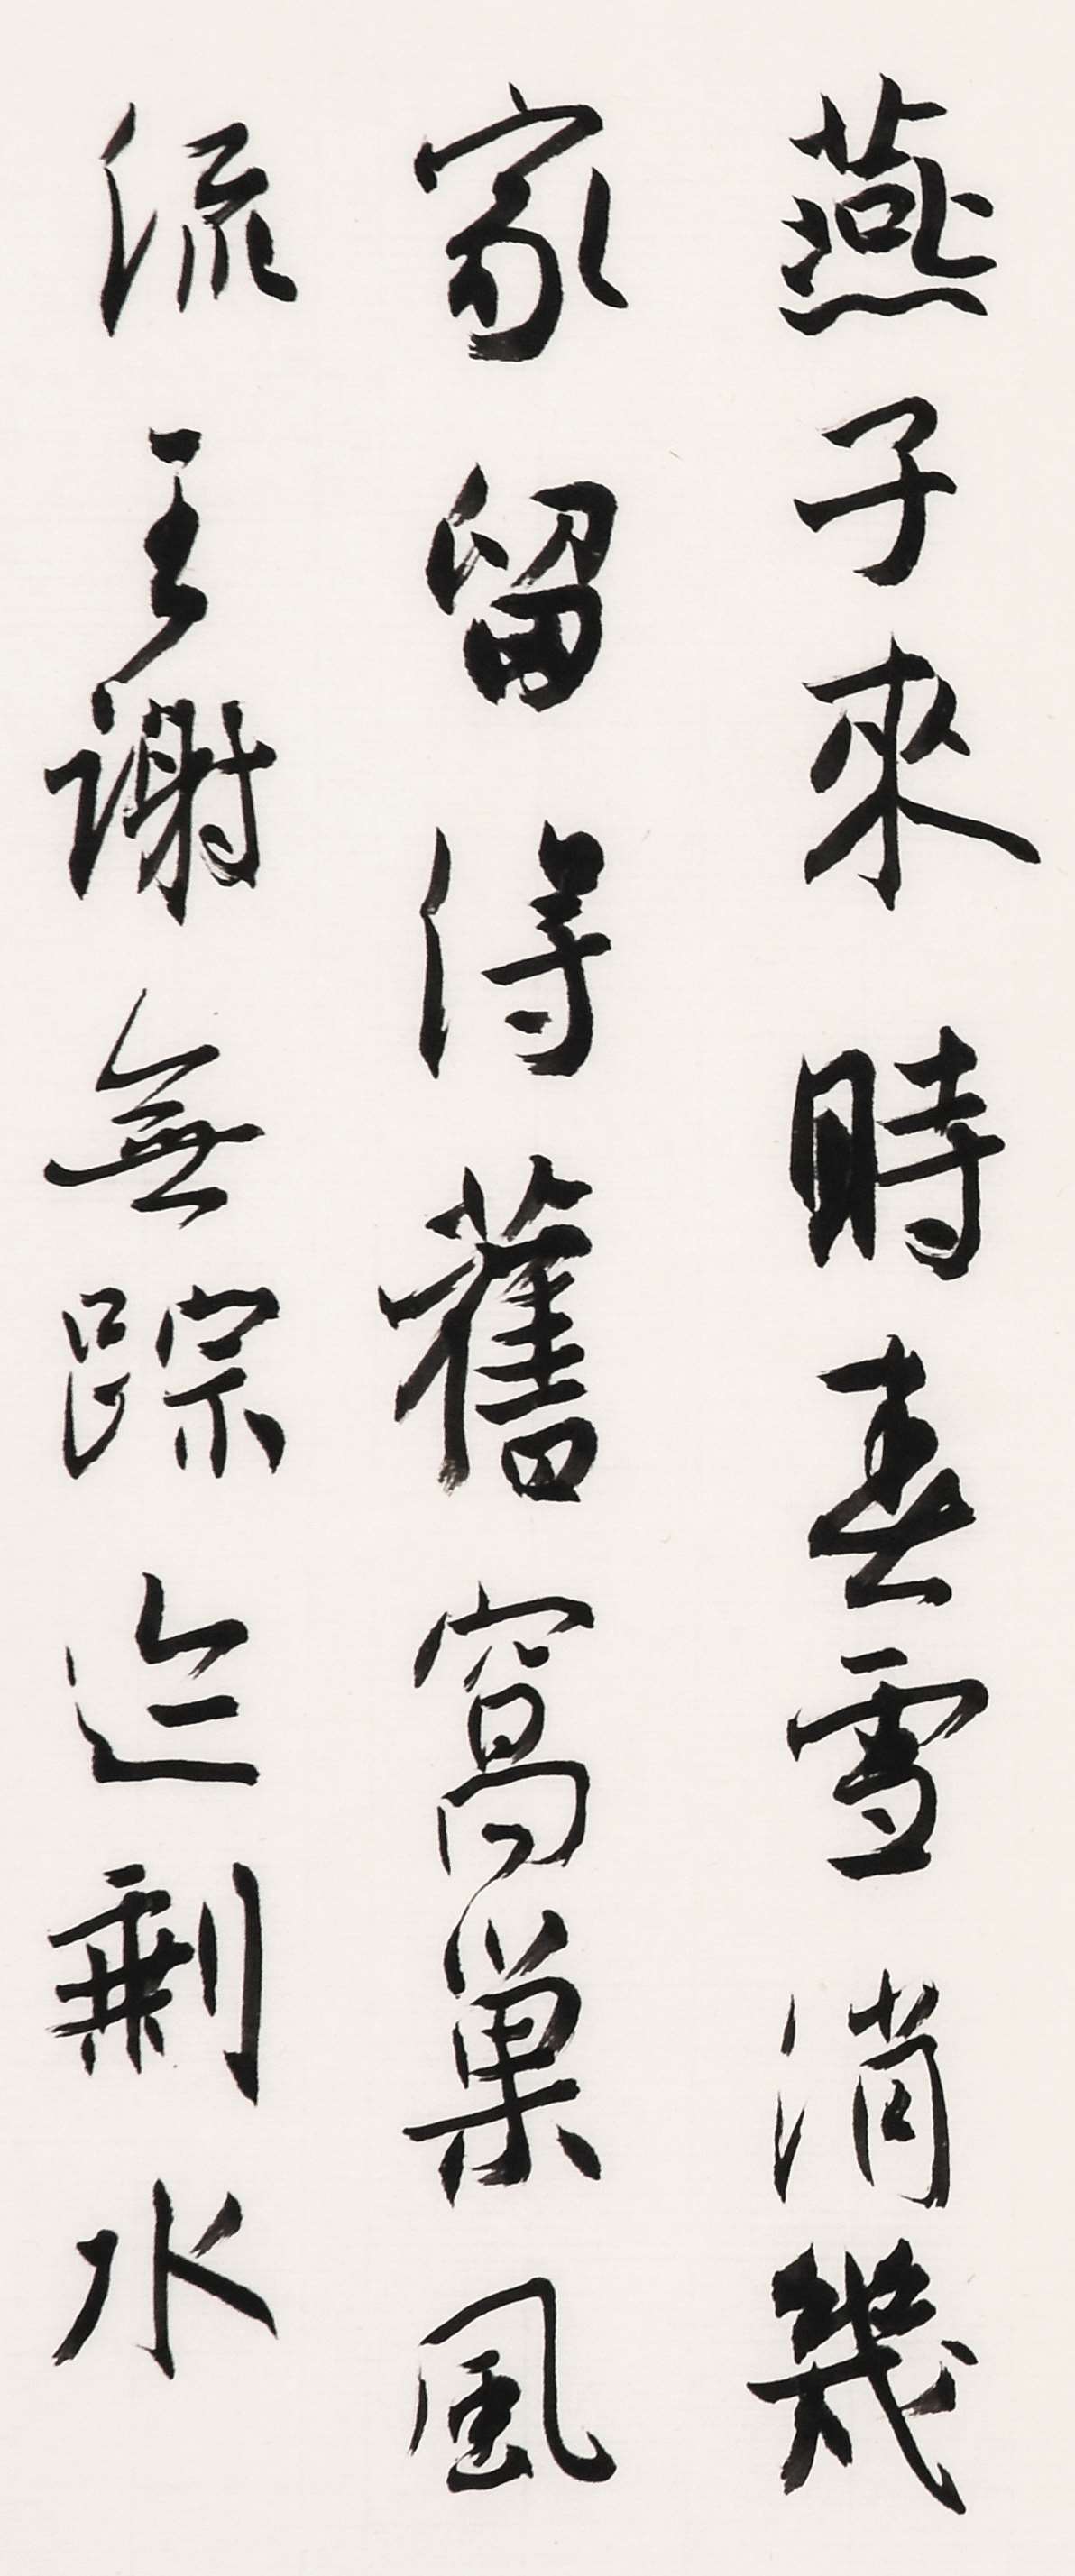 燕子來時春雪消幾
家留得舊窩巢風
流王謝無踪迹剩水